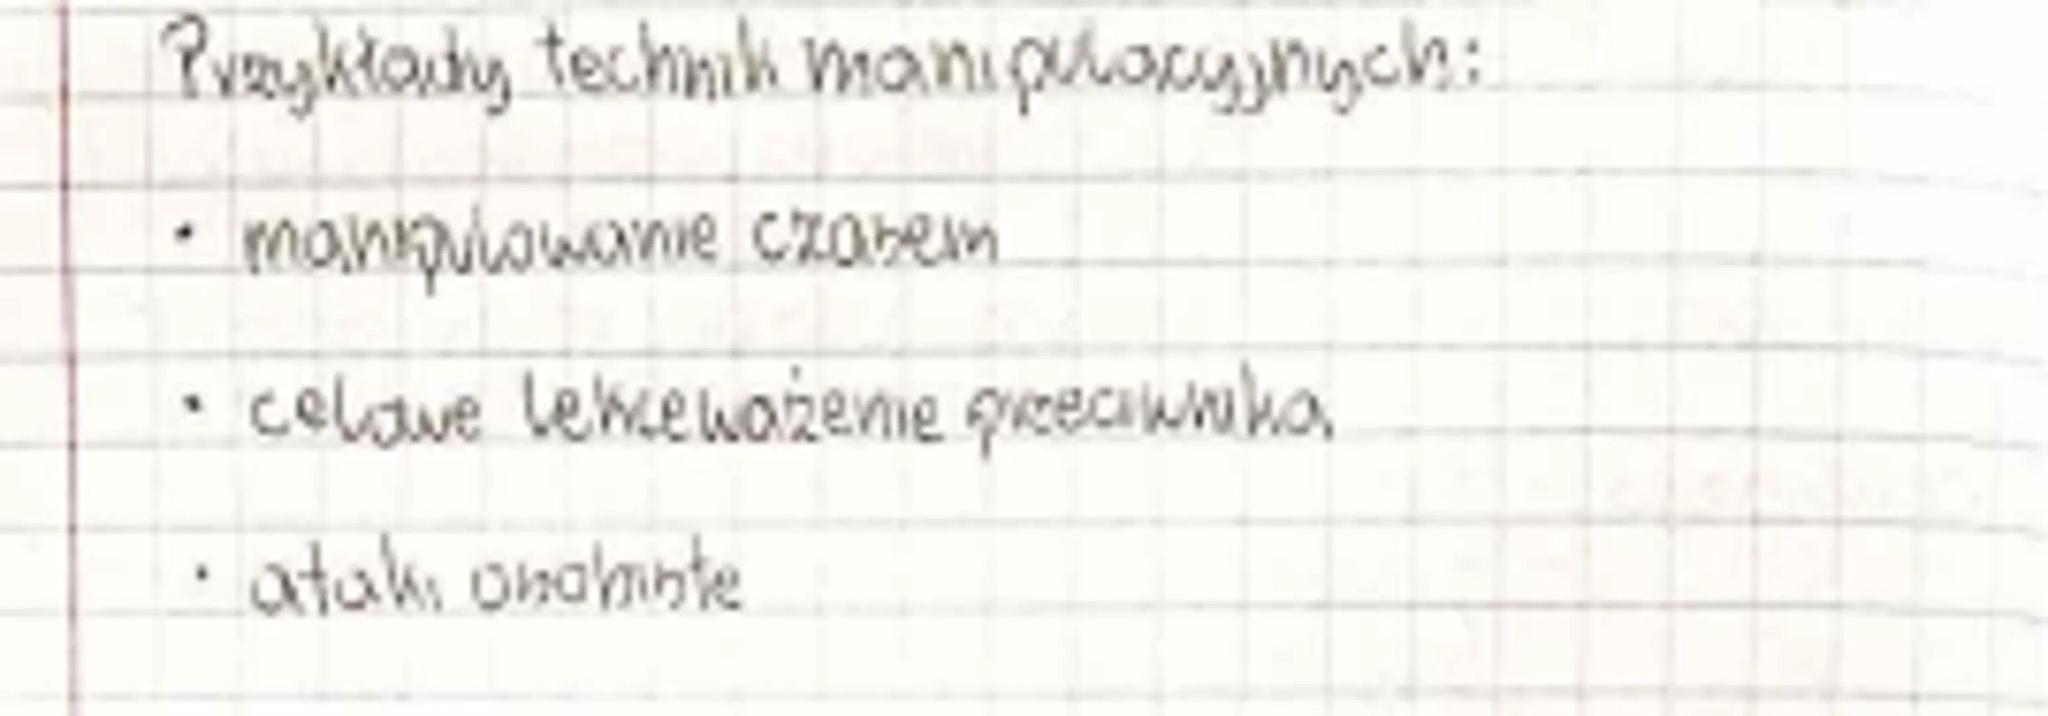 Przykłady technik manipulacyjnych:
• manipulowanie czasem
• celowe lekceważenie przeciwnika
• ataki osobiste